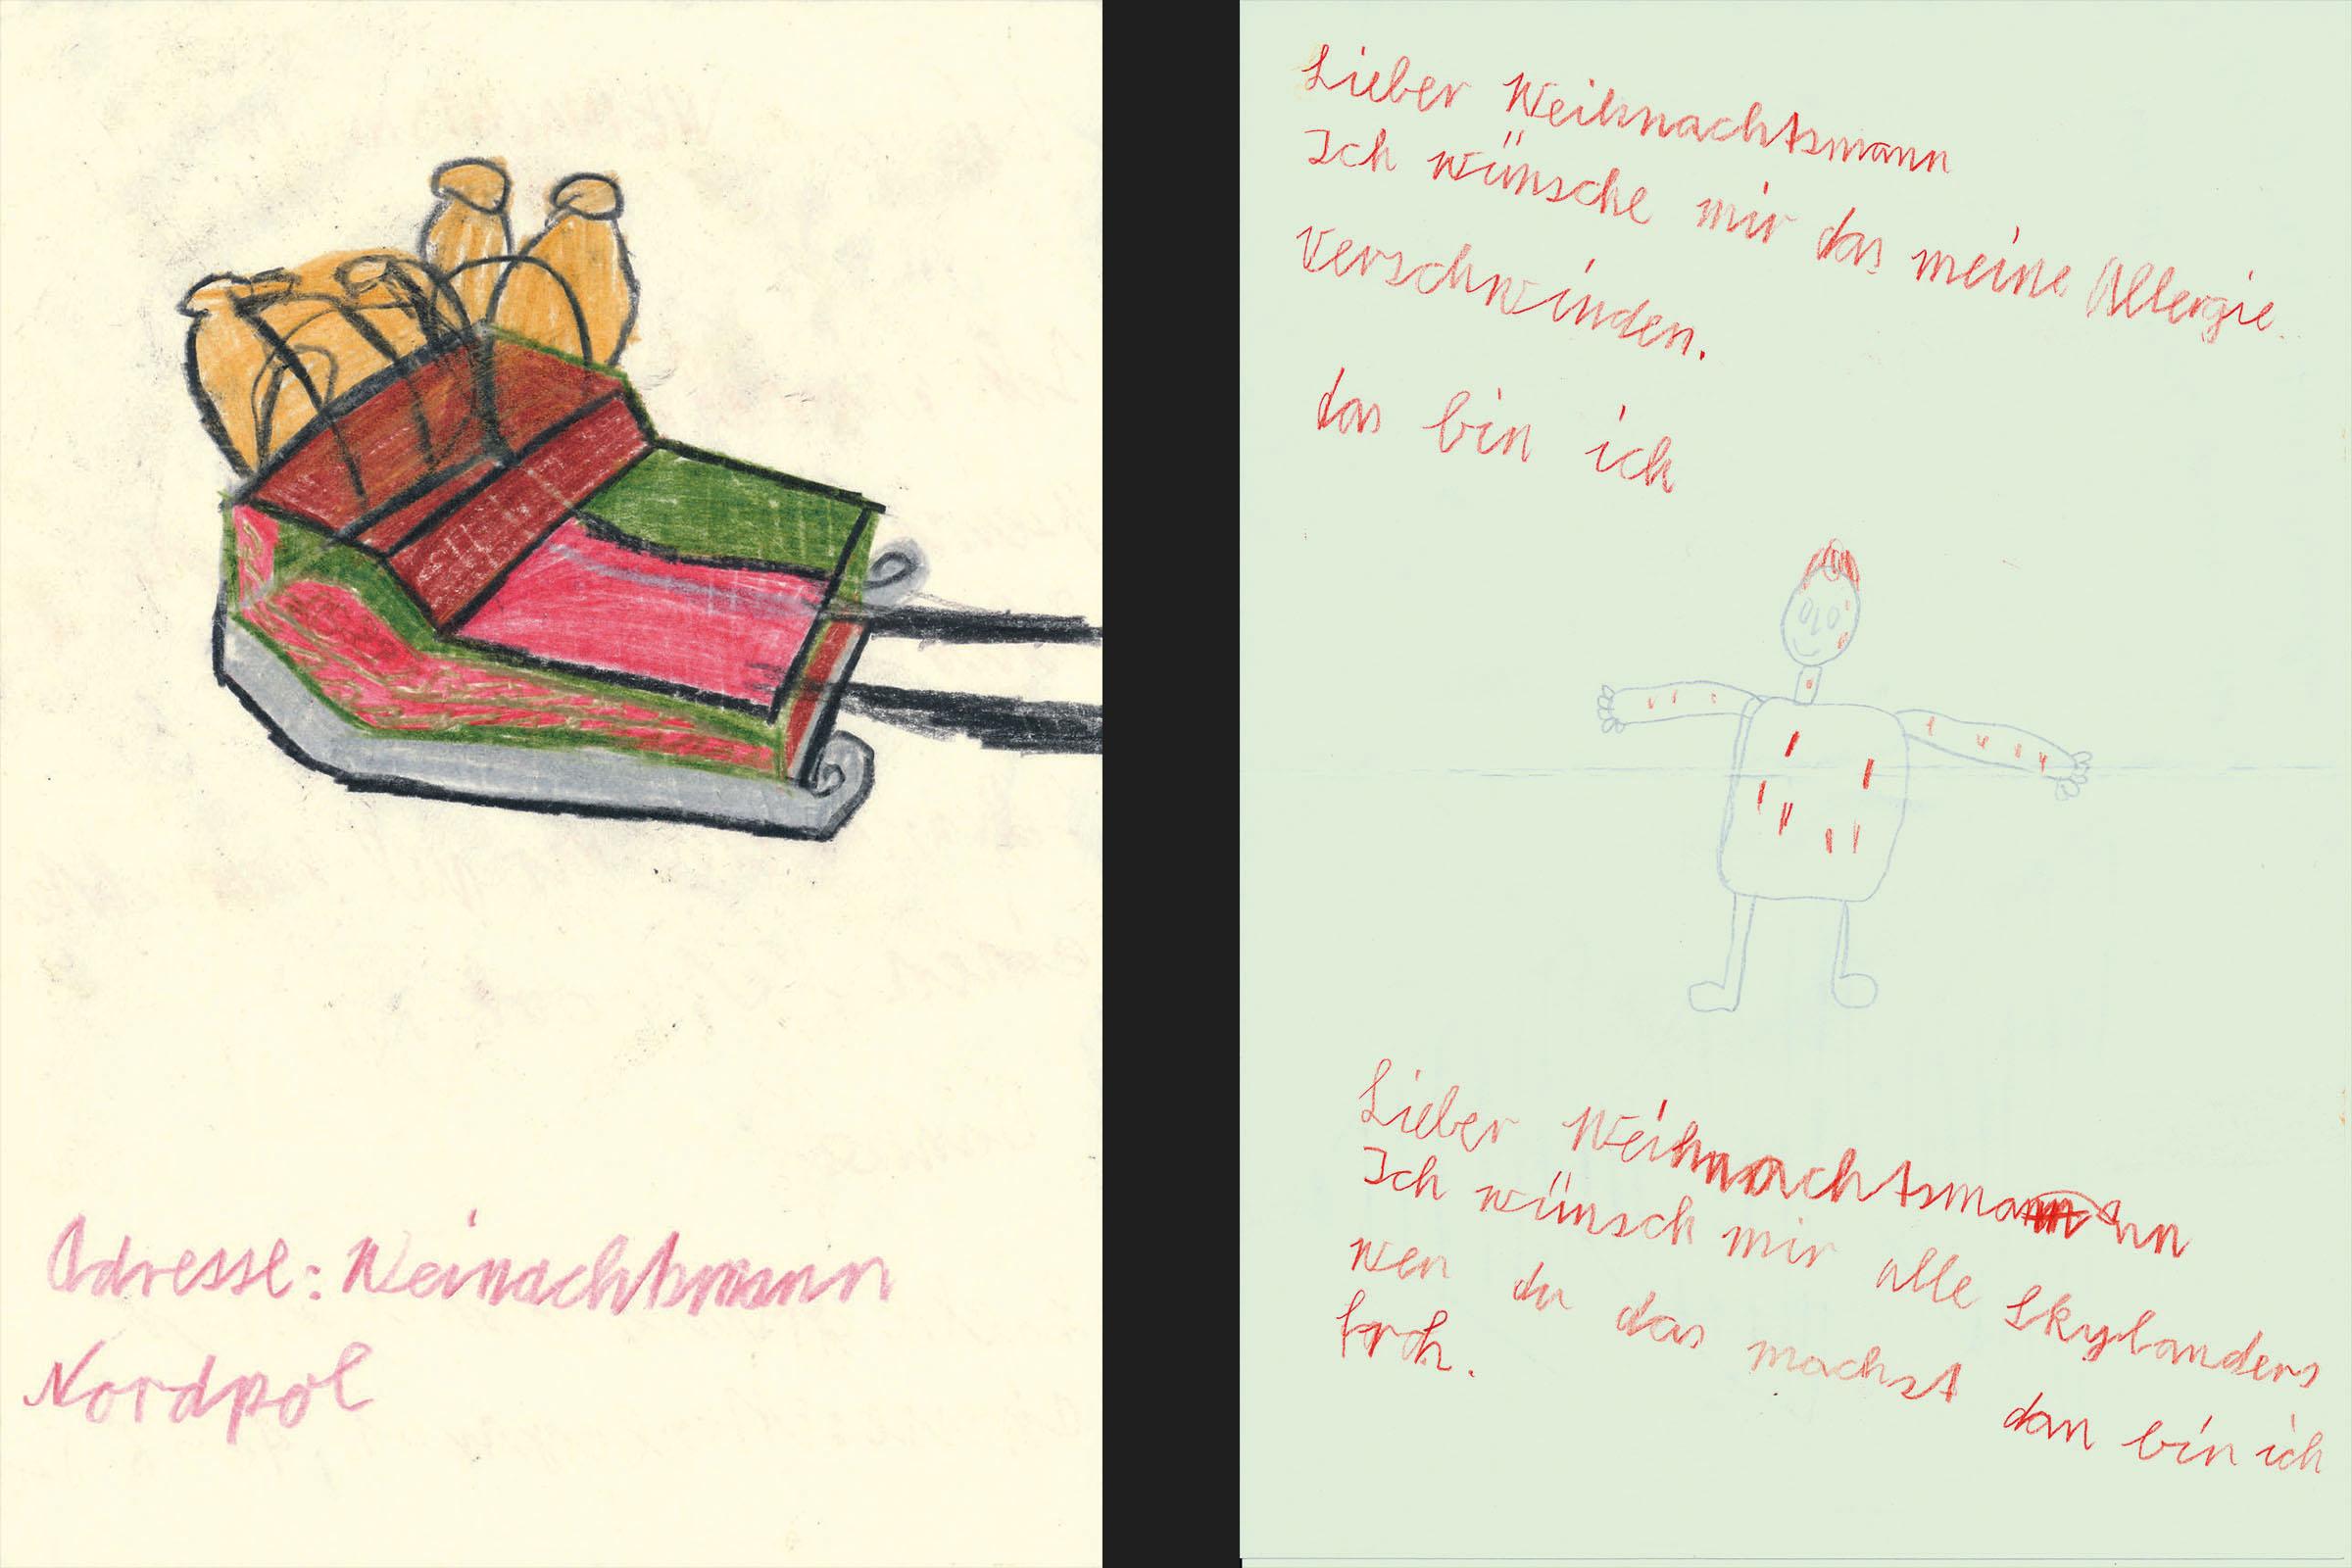 Adresse: Weinachtsmann
Nordpol
Lieber Weihnachtsmann
Ich wünsche mir das meine Allergie
verschwinden.
das bin ich
Lieber Weihnachtsmann
Ich wünsch mir alle Skylanders
wen du das machst dan bin ich
froh.